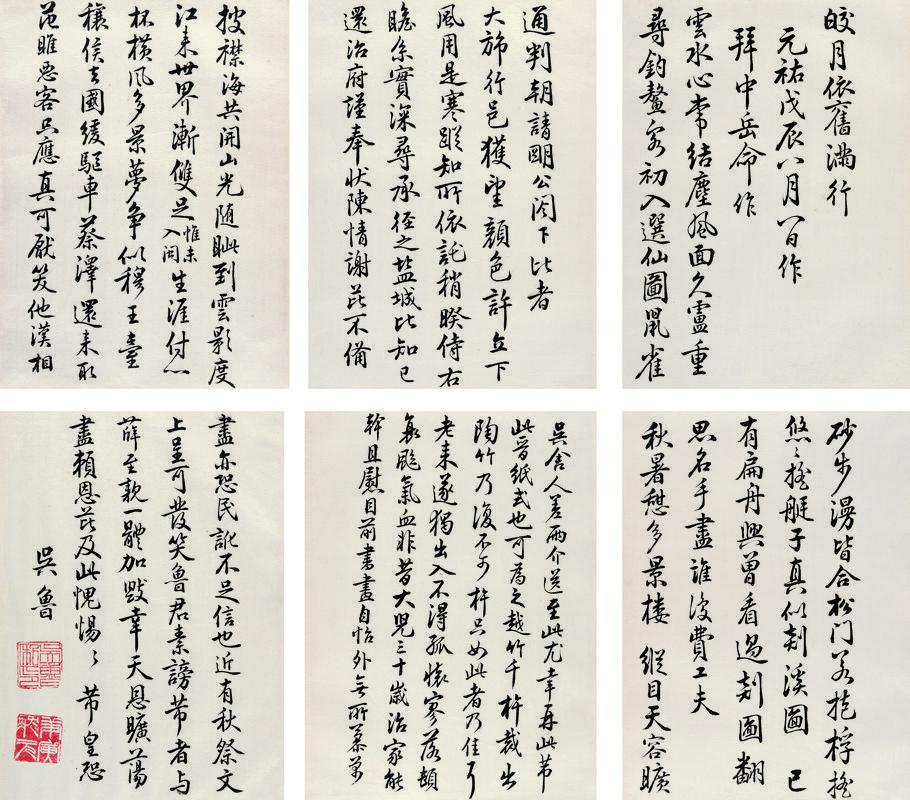 皎月依舊滿行
元祐戊辰八月八日作
拜中岳命作
雲水心常結塵風面久盧重
尋鈞鰲客初入選仙圖鼠雀
通判朝請明公閤下比者
大斾行邑獲望顏色許立下
風用是寒蹤知所依託稍暌侍右
瞻系實深尋承徑之鹽城比知已
還治府謹奉狀陳情謝芘不備
披襟海共開山光随眺到雲影度
江來世界漸雙足惟未入閩生涯付一
杯橫風多景夢爭似穆王臺
穰侯去國緩驅車蔡澤還來取
范睢惡客只應真可厭笑他漢相
砂步漫皆合松門若抱桴搖
悠〻搖艇子真似剡溪圖 已
有扁舟興曾看過剡圖翻
思名手盡誰復費工夫
秋暑憩多景樓 縱目天容曠
吳舍人差兩介送至此尤幸再此芾
此晉紙式也可為之越竹千杵裁出
陶竹乃復不可杵只如此者乃佳耳
老來遂獨出入不得孤懷寥落頓
衰飈氣血非昔大兒三十歲治家能
幹且慰目前書畫自怡外無所慕萬
盡亦恐民訛不足信也近有秋祭文
上呈可發笑魯君素謗芾者與
薛至親一體加毀幸天恩曠蕩
盡賴恩芘及此愧惕〻 芾皇恐
吳魯